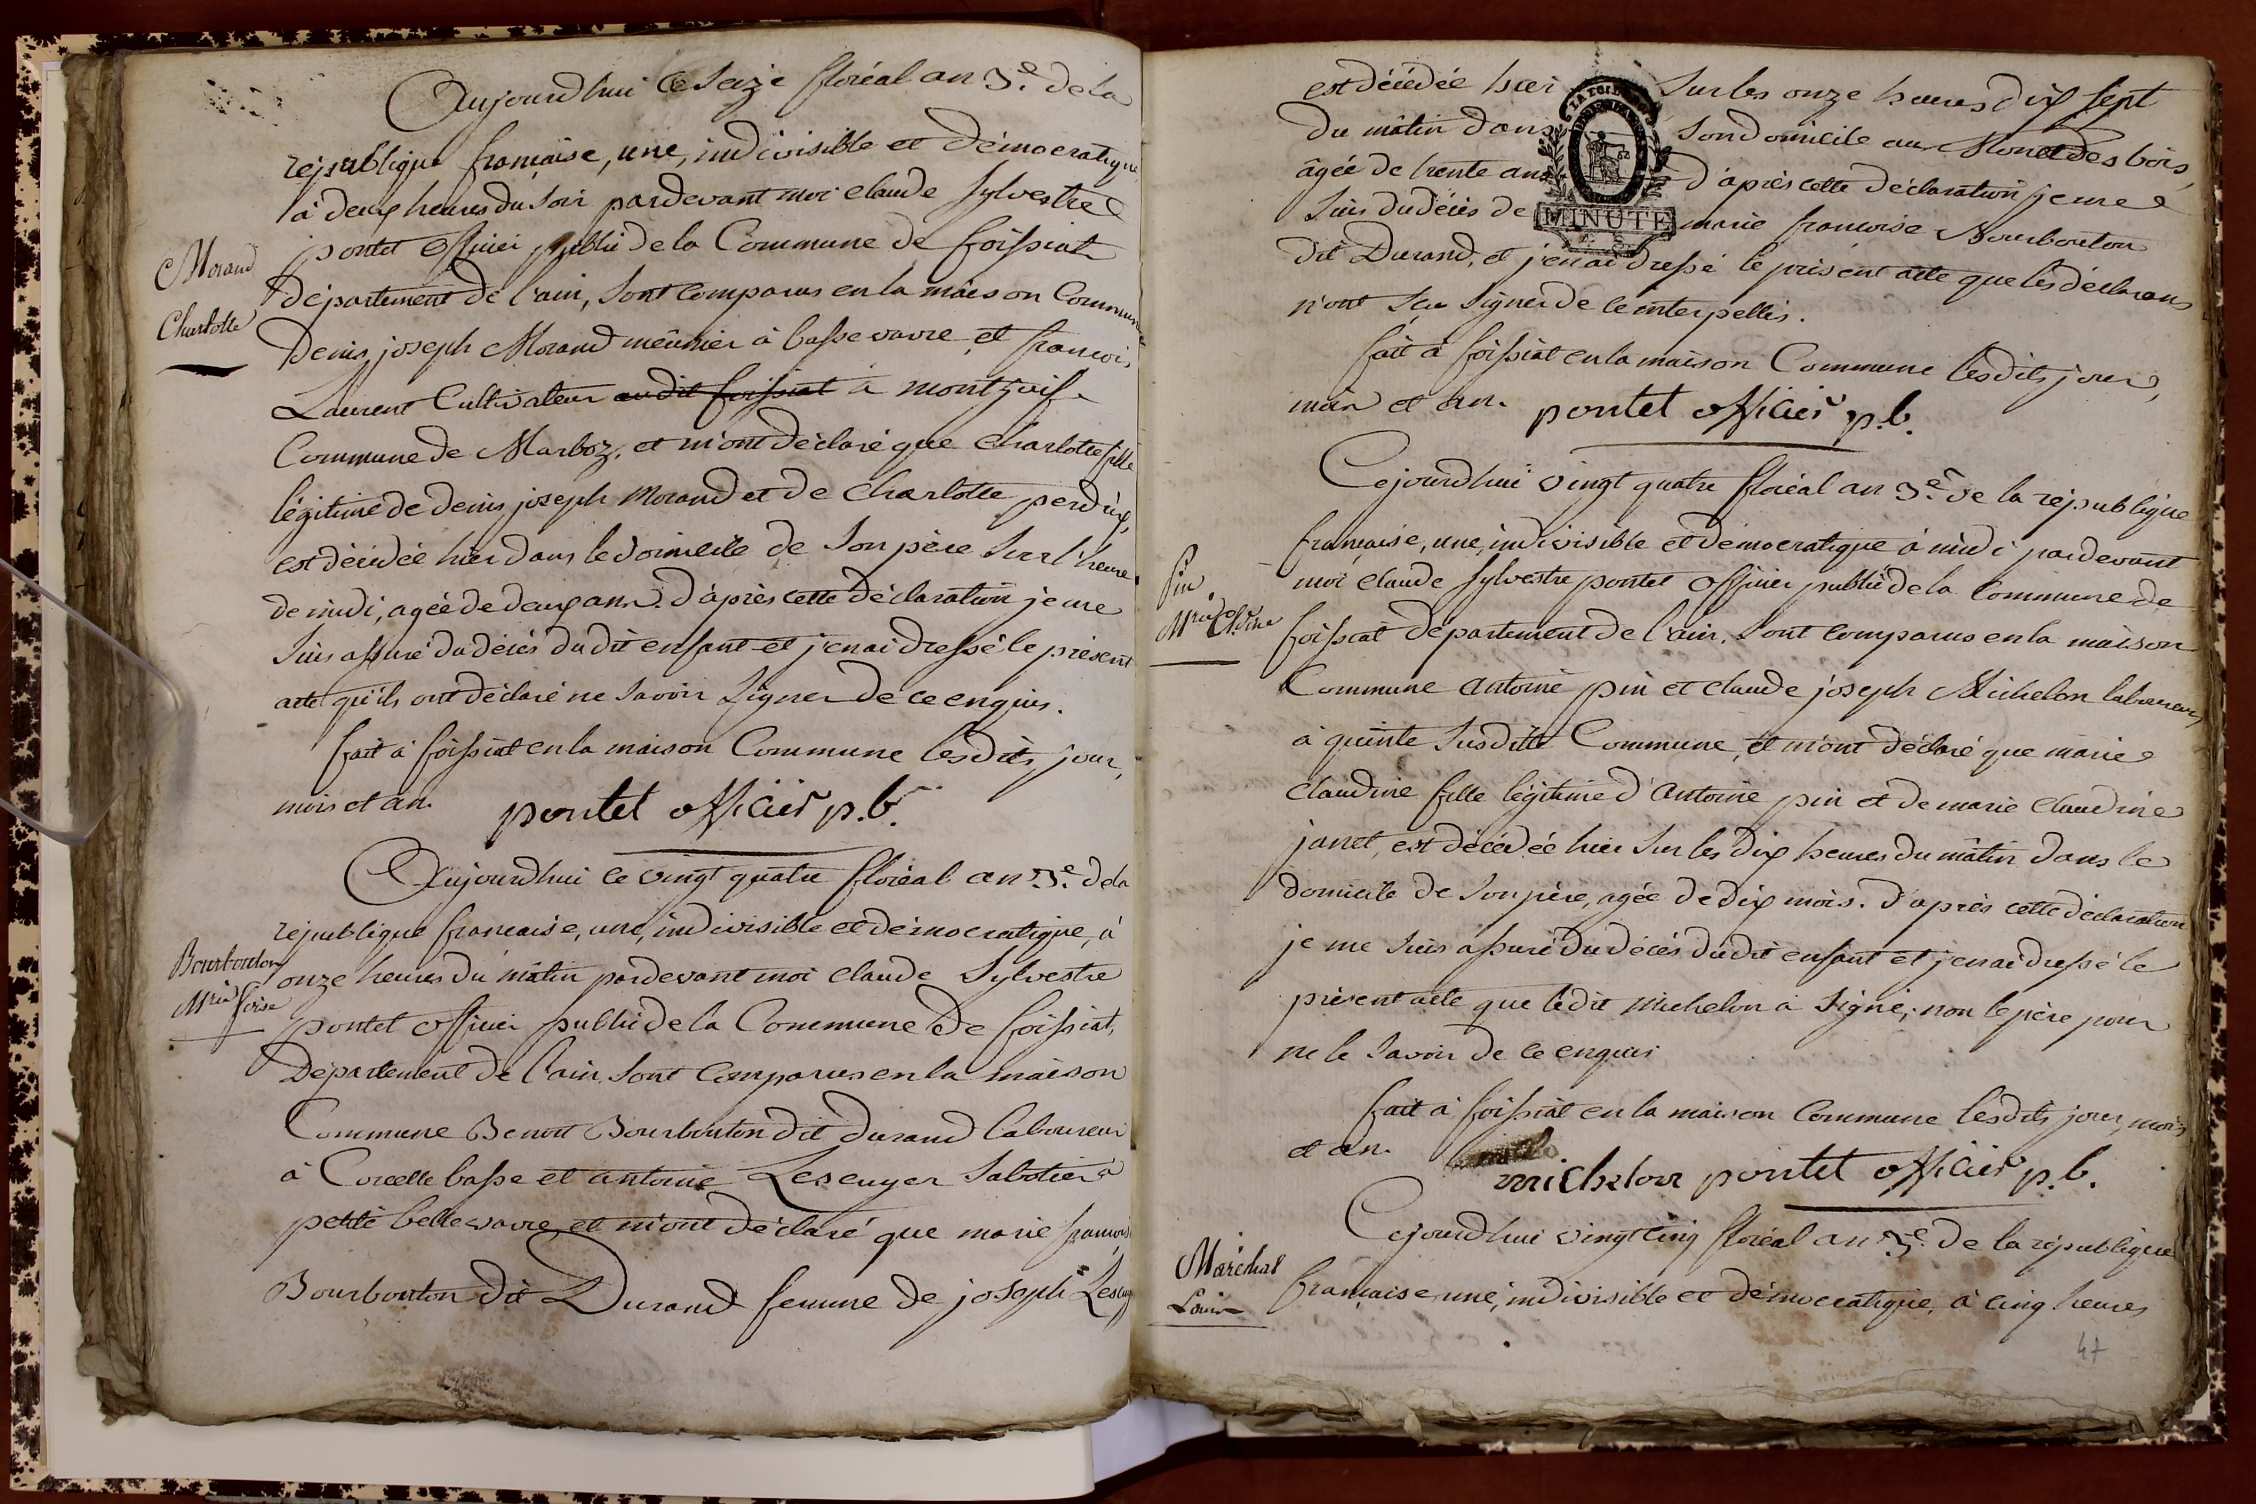 Aujourdhui ce seize floréal an 3.e de la
république française, une, indivisible et démocratique
à deux heures du soir pardevant moi claude Sylvestre
pontet officier public de la Commune de foissiat
Morand
Charlotte
département de l'ain, sont comparus en la maison Commune
Denis joseph Morand meûnier à basse vavre et françois
Laurent Cultivateur au dit foissiat à montjuif
Commune de Marboz, et m'ont déclaré que Charlotte fille
légitime de denis joseph Morand et de Charlotte perdrix,
est décédée hier dans le domicile de son père sur l'heure
de midi, agée de deux ans. d'après cette déclaration je me
suis assuré du décès du dit enfant et j'en ai dressé le présent
acte qu'ils ont déclaré ne savoir signer de ce enquis.
fait à foissiat en la maison Commune lesdits jour,
mois et an. pontet officier p.b.
Aujourdhui ce vingt quatre floréal an 3.e de la
république française, une, indivisible et démocratique, à
Bourbouton
Mrie foise
onze heures du mâtin pardevant moi claude Sylvestre
pontet officier public de la Commune de foissiat,
Département de l'ain sont comparus en la maison
Commune Benoit Bourbouton dit durand laboureur
à Corcelle basse et antoine Lescuyer sabotier à
petite bellevavre et m'ont déclaré que marie françoise
Bourbouton dit Durand femme de joseph Lescuy
est décédée hier sur les onze heures dix sept
du mâtin dans son domicile au Mont des bois,
âgée de trente ans d'après cette déclaration je me
suis du décès de marie francoise Bourbouton
LA LOI
MINUTE
dit Durand, et j'en ai dressé le présent acte que les déclarans
n'ont scu signer de ce interpellés.
fait à foissiat en la maison Commune lesdits jour,
mois et an. pontet officier p.b.
Cejourdhui vingt quatre floréal an 3.e de la république
française, une, indivisible et démocratique à midi pardevant
pin
Mrie Cl.dine
moi claude Sylvestre pontet officier public de la Commune de
foissiat département de l'ain, sont comparus en la maison
Commune antoine pin et claude joseph Michelon laboureurs
à quinte susditte Commune, et m'ont déclaré que marie
claudine fille légitime d'antoine pin et de marie claudine
janet, est décédée hier sur les dix heures du mâtin dans le
domicile de son père, agée de dix mois. d'après cette déclaration
je me suis assuré du décès dudit enfant et j'en ai dressé le
présent acte que ledit Michelon à signé, non le père pour
ne le savoir de ce enquis
fait à foissiat en la maison Commune lesdits jour, mois
et an.
michelon pontet officier p.b.
Cejourdhui vingt cinq floréal an 3.e de la république
Maréchal
Louis
française une, indivisible et démocratique, à cinq heures
47